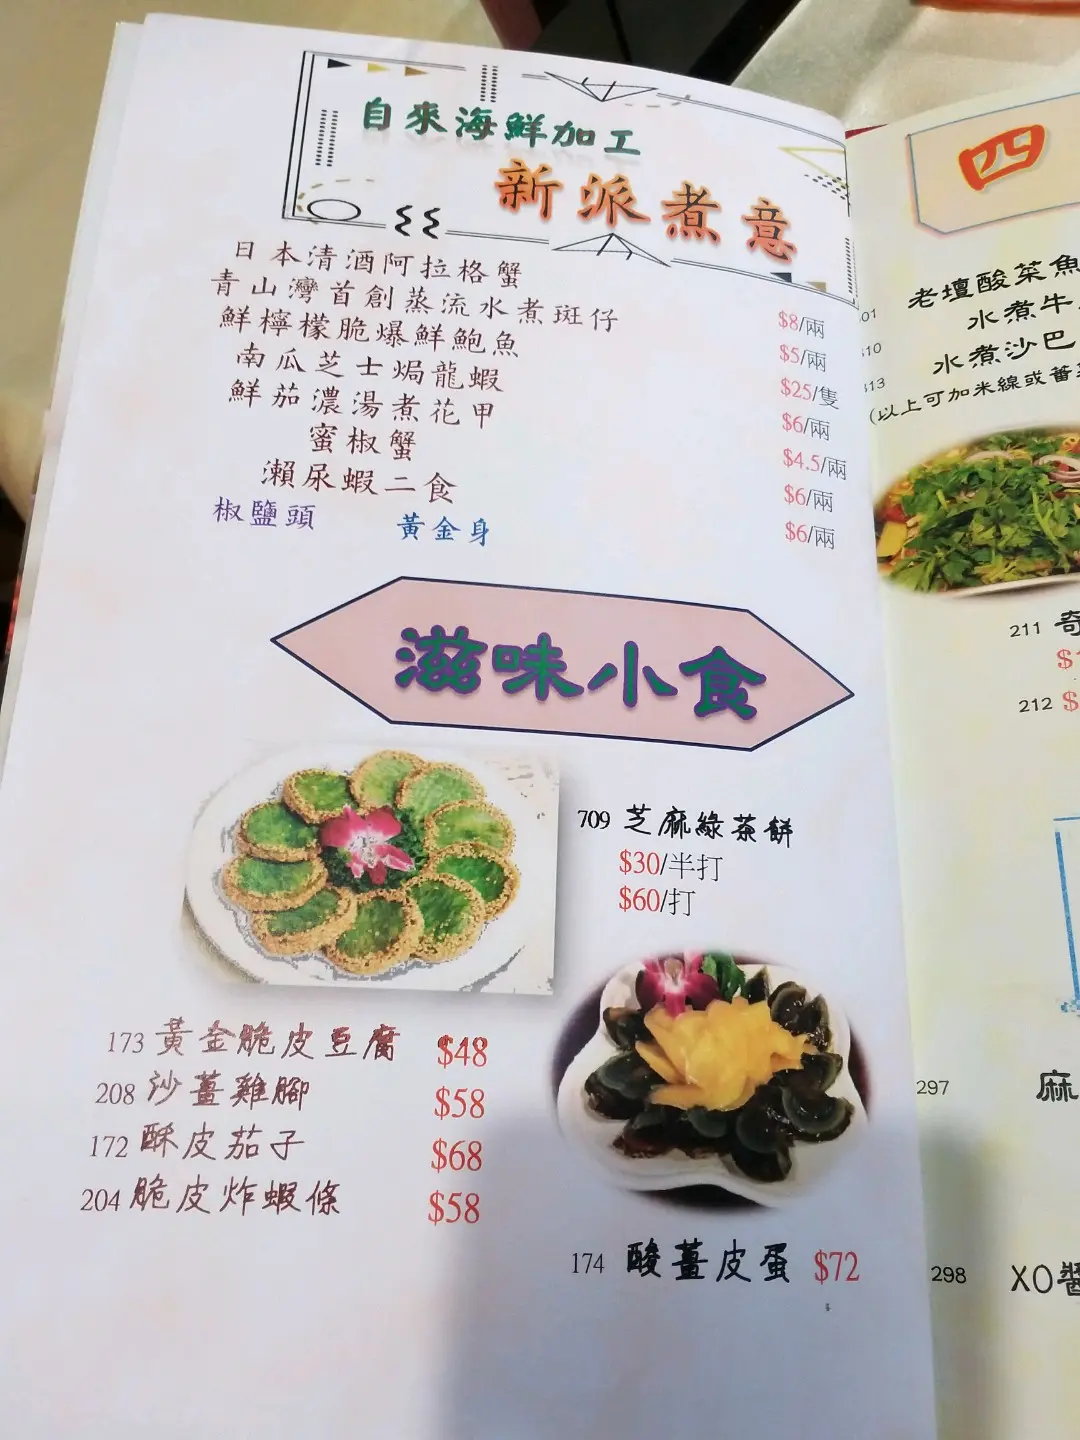 自來海鮮加工
新派煮意
日本清酒阿拉格蟹 $8/兩
青山灣首創蒸流水煮斑仔 $5/兩
鮮檸檬脆爆鮮鮑魚 $25/隻
南瓜芝士焗龍蝦 $6/兩
鮮茄濃湯煮花甲 $4.5/兩
蜜椒蟹 $6/兩
瀨尿蝦二食 $6/兩
椒鹽頭 黃金身
滋味小食
709 芝麻綠茶餅
$30/半打
$60/打
173 黃金脆皮豆腐 $48
208 沙薑雞腳 $58
172 酥皮茄子 $68
204 脆皮炸蝦條 $58
174 酸薑皮蛋 $72
四
01 老壇酸菜魚
10 水煮牛
13 水煮沙巴
(以上可加米線或蕃
211 奇
212
297 麻
298 XO醬